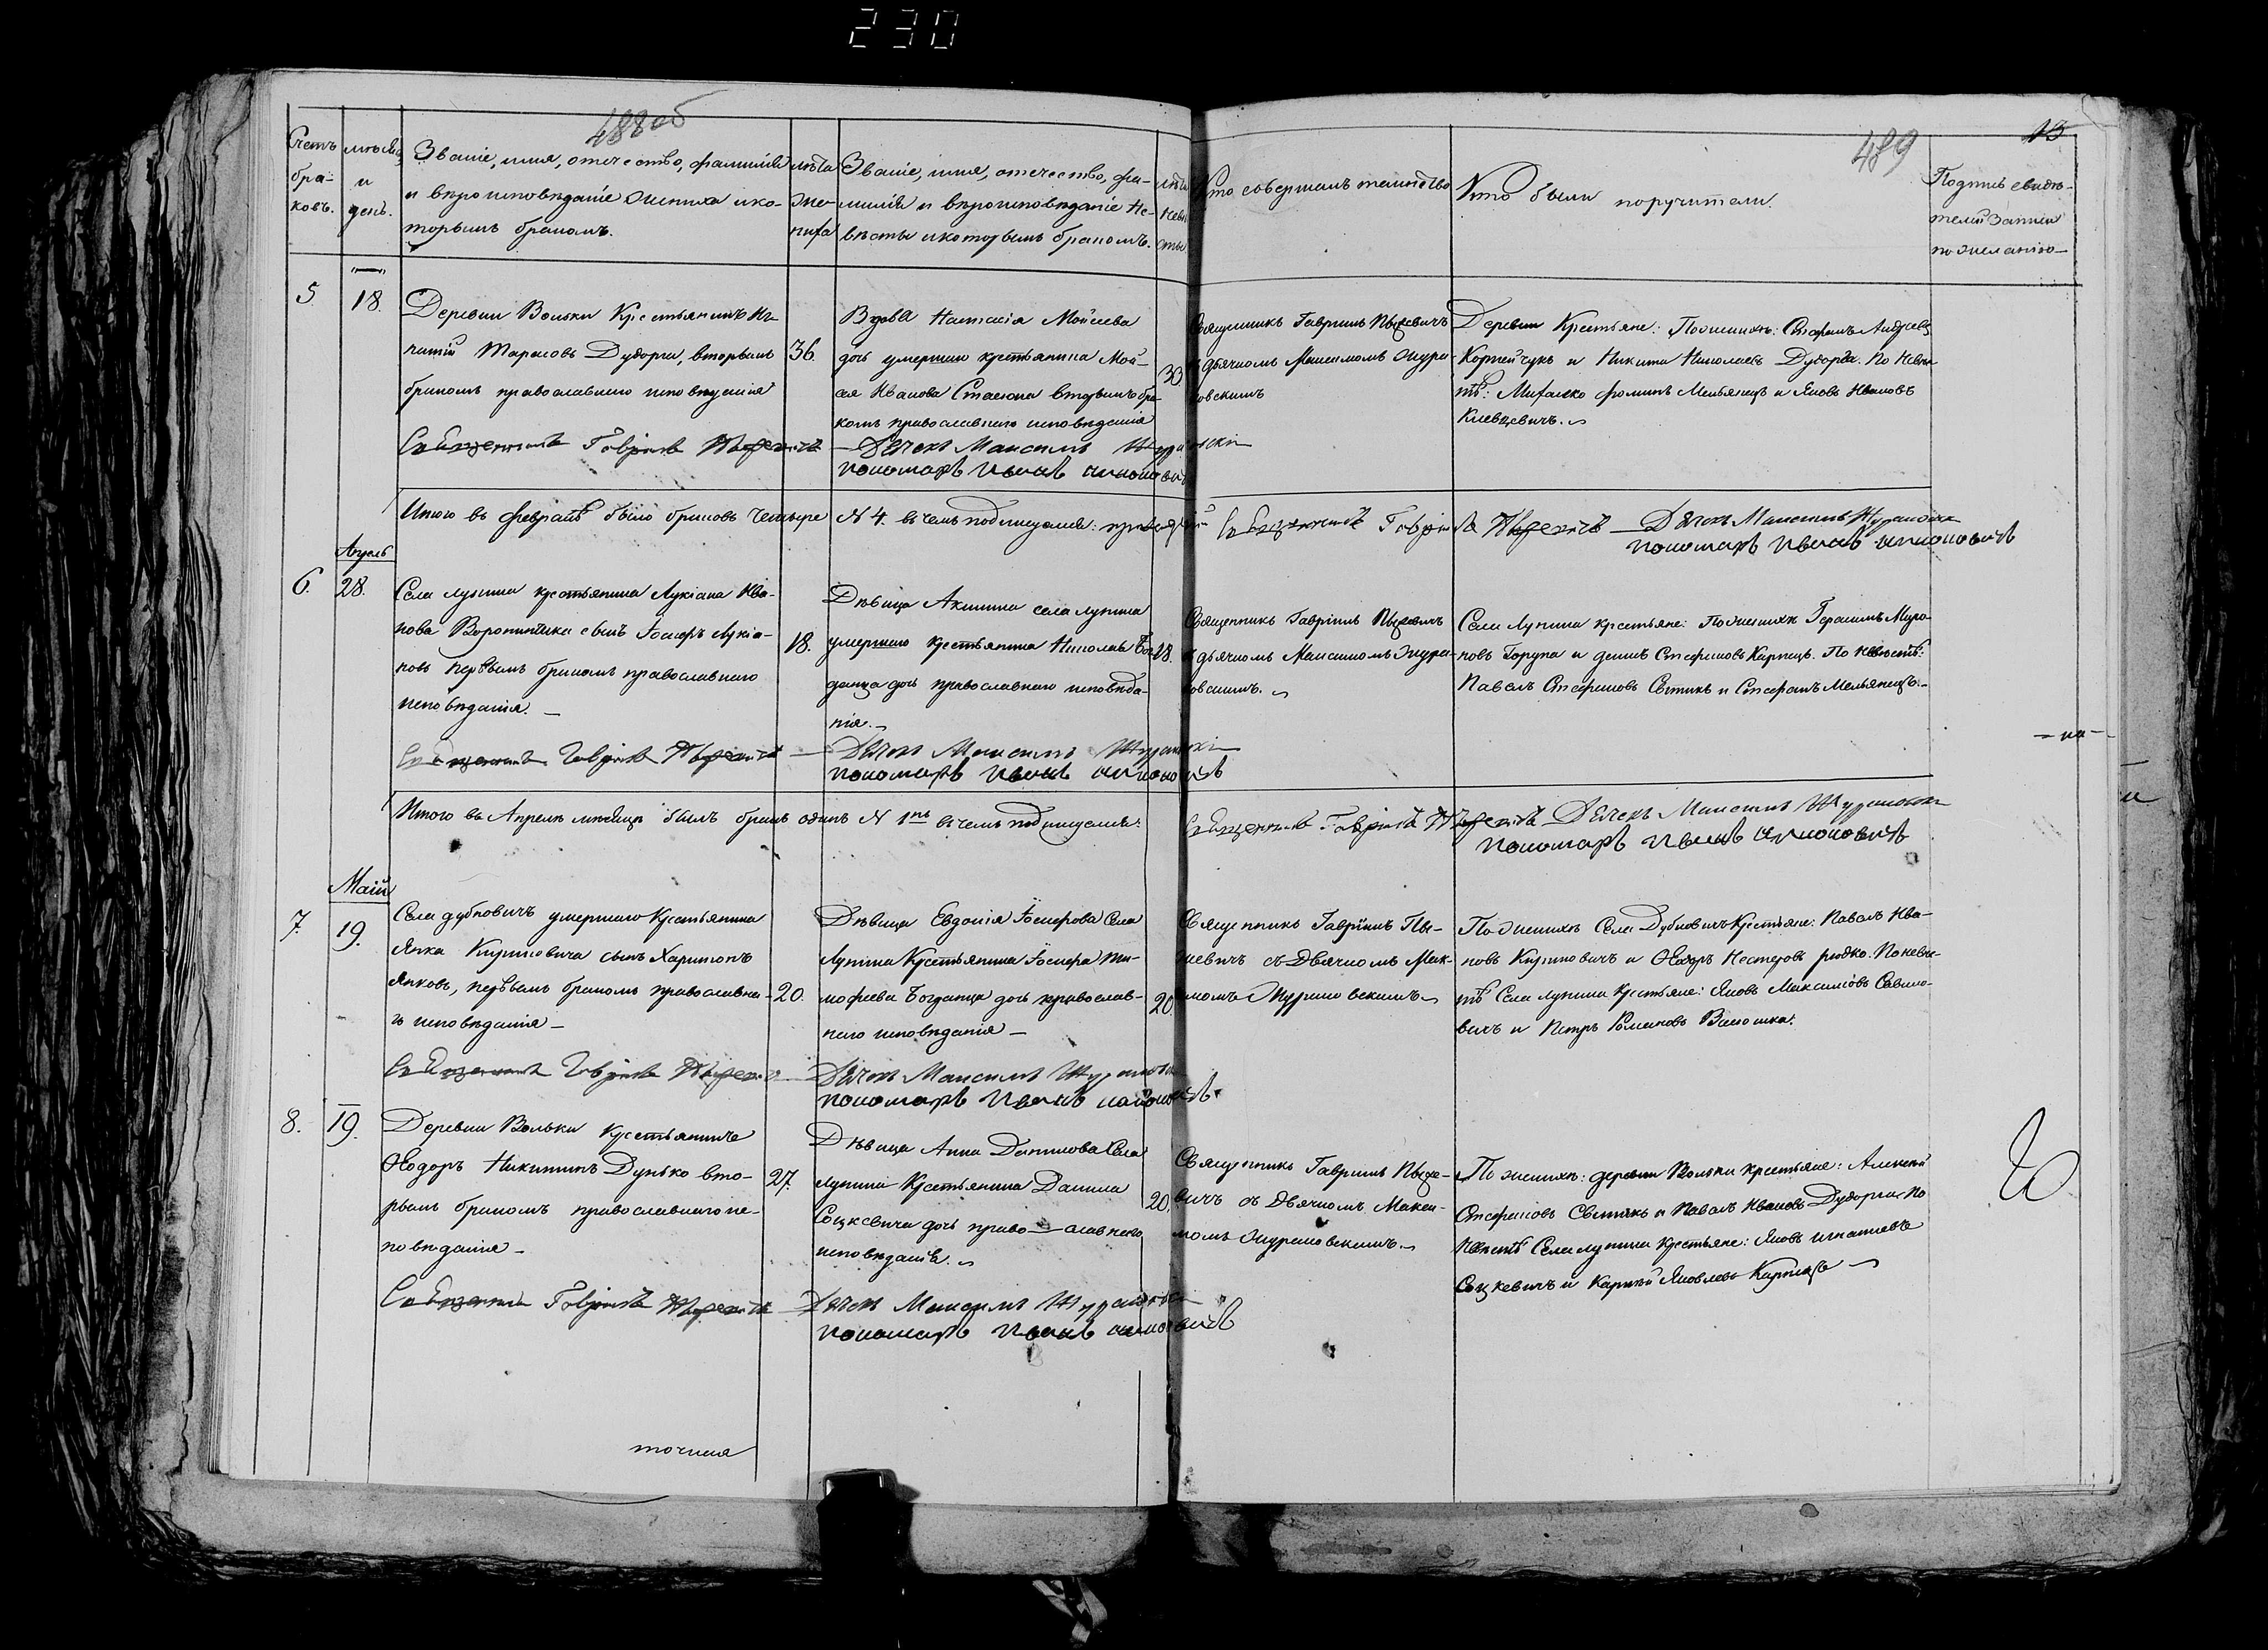 230
488 об
489
13
Счетъ бра- ковъ.
мѣсяц и день.
Званіе, имя, отечество, фамилія
и вѣроисповѣданіе жениха и ко-
торымъ бракомъ.
лѣта же- ниха
Званіе, имя, отечество, фа-
милія и вѣроисповѣданіе Не-
вѣсты и которымъ бракомъ.
лѣта Невѣ сты
Кто совершалъ таинство
Кто были поручители.
Подпись свидѣ-
телей записи
по желанію
5.
18.
Деревни Вольки Крестьянинъ Иг-
натій Тарасовъ Дудорга, вторымъ
бракомъ православнаго исповѣданія
36.
Вдова Настасія Мойсеева
дочь умершаго крестьянина Мой-
сея Иванова Стасюка вторымъ бра-
комъ православнаго исповѣданія
30
Священникъ Гавріилъ
съ дьячкомъ Максимомъ Жура-
ковскимъ
Деревни Крестьяне: По женихѣ: Стефанъ Андреев
Корнейчукъ и Никита Николаевъ Дудорга. По Невѣ
тѣ: Михалко Фоминъ Мельянецъ и Яковъ Ивановъ
Клевцевичъ.
Священникъ Гавріилъ
Дьячекъ Максимъ
пономарь Иванъ
Итого въ февралѣ было браковъ Четыре N 4. въ чемъ подписуемся:
Священникъ Гавріилъ
Дьячекъ Максимъ
пономарь Иванъ
Апрель
6.
28.
Села лунина крестьянина Лукіана Ива-
нова Воропитика сынъ Іосифъ Лукіа-
новъ первымъ бракомъ православнаго
исповѣданія.
18.
Дѣвица Акилина села лунина
умершаго крестьянина Николая Бог
данца дочь православнаго исповѣда-
нія.
18.
Священникъ Гавріилъ
съ дьячкомъ Максимомъ Жура-
ковскимъ.
Села Лунина крестьяне: По женихѣ Герасимъ Миро-
новъ Горупа и Стефановъ Карпецъ. По невѣстѣ:
Павелъ Стефановъ Свитикъ и Стефанъ Мельянецъ.
Священникъ Гавріилъ
Дьячекъ Максимъ
пономарь Иванъ
Итого въ Апрелѣ мѣсяцѣ былъ бракъ одинъ N 1 въ чемъ подписуемся:
Священникъ Гавріилъ
Дьячекъ Максимъ
пономарь Иванъ
Май
7.
19.
Села дубновичъ умершаго Крестьянина
Янка Куриловича сынъ Харитонъ
Янковъ, первымъ бракомъ православна-
го исповѣданія
20.
Дѣвица Евдокія Іосифова Села
Лунина Крестьянина Іосифа Ти-
мофеева Богданца дочь православ-
наго исповѣданія
20
Священникъ Гавріилъ
съ Дьячкомъ Мак-
имомъ Жураковскимъ
По женихѣ Села Дубновичъ Крестьяне: Павелъ Ива-
новъ Куриловичъ и Ѳеодоръ Нестеровъ редко. По невѣ-
тѣ Села лунина Крестьяне: Яковъ Максимовъ Савило-
вичъ и Петръ Романовъ
Священникъ Гавріилъ
Дьячекъ Максимъ
пономарь Иванъ
8.
19.
Деревни Вольки Крестьянинъ
Ѳеодоръ Никитинъ Дунько вто-
рымъ бракомъ православнаго ис-
повѣданія
27.
Дѣвица Анна Данилова Села
лунина Крестьянина Данила
Соцкевича дочь право-славнаго
исповѣданія.
20.
Священникъ Гавріилъ
съ Дьячкомъ Макси-
момъ Жураковскимъ.
По женихѣ: деревни Вольки крестьяне: Алексей
Стефановъ Свитикъ и Павелъ Ивановъ Дудорга. По
Невѣстѣ Села лунина крестьяне: Яковъ Игнатіевъ
Соцкевичъ и Карпъ Яковлевъ Карпецъ
Священникъ Гавріилъ
Дьячекъ Максимъ
пономарь Иванъ